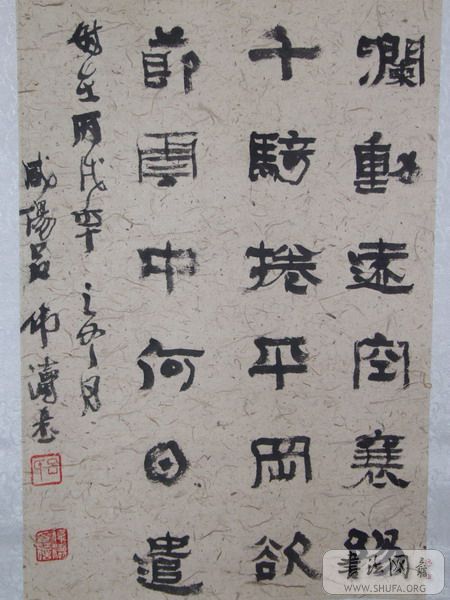 瀾動遠空襄
千騎捲平岡欲
節雲中何日遣
時在丙戌年之月
咸陽呂濤
書法网
WWW.SHUFA.ORG